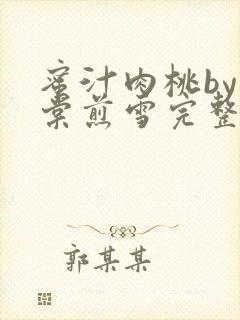 蜜汁肉桃by
棠煎雪完整
郭某某